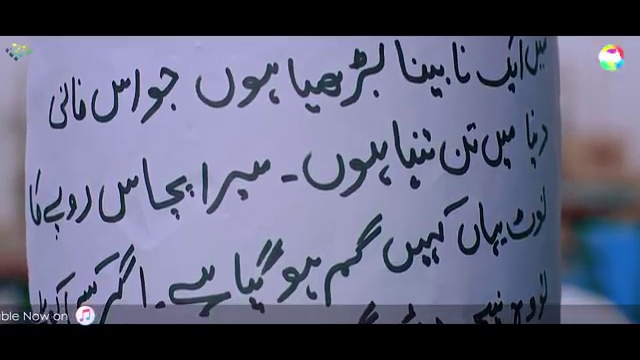 میں ایک نابینا بڑھیا ہوں جو اس فانی
دنیا میں تن تنہا ہوں۔ میرا پچاس روپے کا
نوٹ یہاں کہیں گم ہو گیا ہے۔ اگر کسی
ble Now on